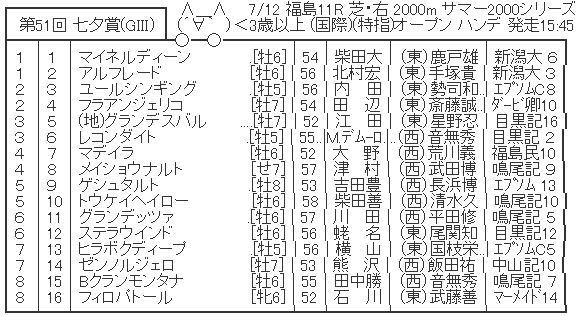 第51回 七夕賞(GIII) 7/12 福島11R 芝・右 2000m サマー2000シリーズ
<3歳以上 (国際)(特指)オープン ハンデ 発走15:45
1 1 マイネルディーン ..[牡6] 54 柴田大 (東)鹿戸雄 新潟大 6
1 2 アルフレード ....[牡6] 56 北村宏 (東)手塚貴 新潟大 3
2 3 ユールシンギング ..[牡5] 56 内 田 (東)勢司和.. エプソムC8
2 4 フラアンジェリコ ..[牡7] 54 田 辺 (東)斎藤誠.. ダービ卿10
3 5 (地)グランデスバル ....[牡7] 52 江 田 (東)星野忍 目黒記16
3 6 レコンダイト ....[牡5] 55.. M.デムーロ.. (西)音無秀 目黒記 2
4 7 マデイラ ....[牡6] 52 大 野 (西)荒川義 福島民10
4 8 メイショウナルト ..[せ7] 57 津 村 (西)武田博 鳴尾記 9
5 9 ゲシュタルト ....[牡8] 53 吉田豊 (西)長浜博 エプソム 13
5 10 トウケイヘイロー ..[牡6] 58 柴田善 (西)清水久 鳴尾記10
6 11 グランデッツァ ....[牡6] 57 川 田 (西)平田修 鳴尾記 5
6 12 ステラウインド ....[牡6] 56 蛯 名 (東)尾関知 目黒記12
7 13 ヒラボクディープ ..[牡5] 56 横 山 (東)国枝栄.. エプソムC5
7 14 ゼンノルジェロ ....[牡7] 53 熊 沢 (西)飯田祐 中山記10
8 15 Bクランモンタナ ..[牡6] 55 田中勝 (西)音無秀 鳴尾記 7
8 16 フィロパトール ....[牝6] 52 石 川 (東)武藤善 マーメイド14